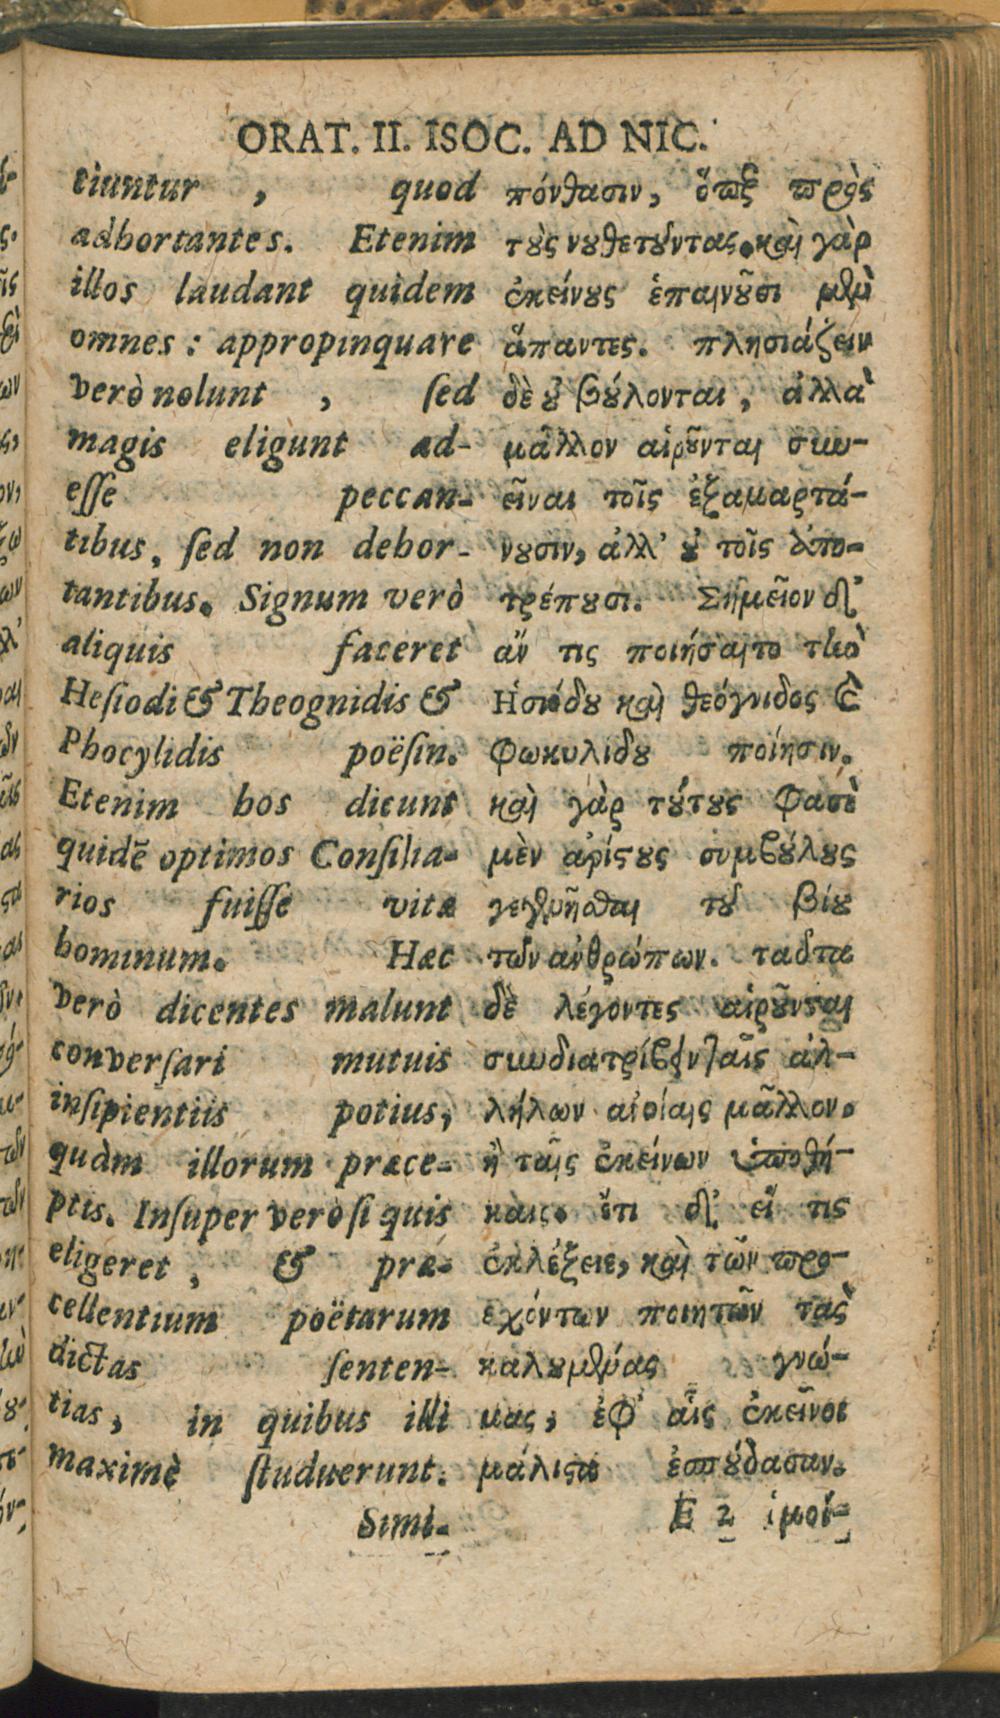 ORAT. II. ISOC. AD NIC.
tiuntur , quod
adhortantes. Etenim
illos laudant quidem
omnes : appropinquare
verò nolunt , ſed
magis eligunt ad-
eſſe peccan-
tibus, ſed non dehor-
tantibus. Signum verò
aliquis faceret
Heſiodi & Theognidis &
Phocylidis poëſin.
Etenim hos dicunt
quidē optimos Conſilia-
rios fuiſſe vitæ
hominum. Hæc
verò dicentes malunt
converſari mutuis
inſipientiis potius,
quàm illorum præce-
ptis. Inſuper verò ſi quis
eligeret , & præ-
cellentium poëtarum
dictas ſenten-
tias, in quibus illi
maximè ſtuduerunt.
Simi-
πόνθασιν, ὅπερ πρὸς
τοὺς νουθετοῦντας. καὶ γὰρ
ἐκείνους ἐπαινοῦσι μὲν
ἅπαντες. πλησιάζειν
δὲ οὐ βούλονται, ἀλλὰ
μᾶλλον αἱροῦνται συν-
εῖναι τοῖς ἐξαμαρτά-
νουσιν, ἀλλ' οὐ τοῖς ἀπο-
τρέπουσι. Σημεῖον δ'
ἄν τις ποιήσαιτο τὴν
Ησιόδου καὶ Θεόγνιδος καὶ
Φωκυλίδου ποίησιν.
καὶ γὰρ τούτους φασὶ
μὲν ἀρίστους συμβούλους
γεγενῆσθαι τοῦ βίου
τῶν ἀνθρώπων. ταῦτα
δὲ λέγοντες αἱροῦνται
συνδιατρίβειν ταῖς ἀλ-
λήλων ἀνοίαις μᾶλλον.
ἢ ταῖς ἐκείνων ὑποθή-
καις. ἔτι δ' εἴ τις
ἐκλέξειε, καὶ τῶν προ-
εχόντων ποιητῶν τὰς
καλουμένας γνώ-
μας, ἐφ' αἷς ἐκεῖνοι
μάλιστα ἐσπούδασαν.
E 2 ὁμοί-